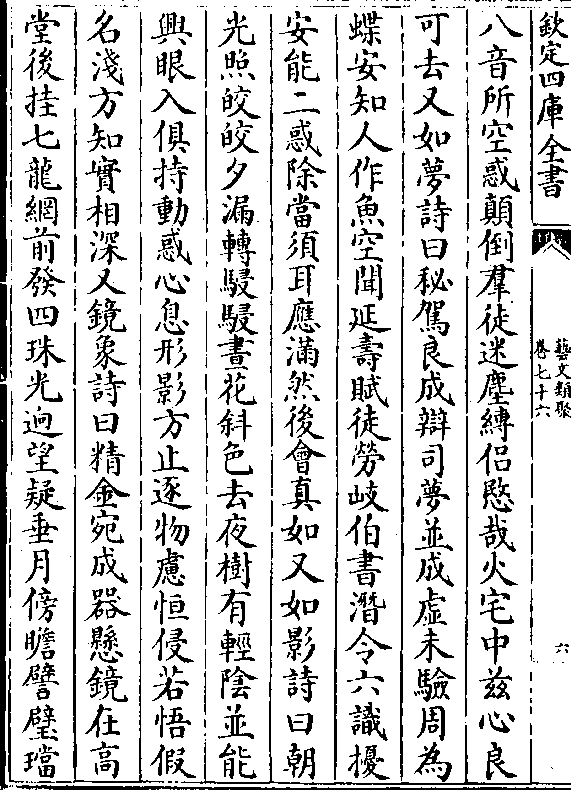 欽定四庫全書
藝文類聚
卷七十六
六
八音所空惑顛倒羣徒迷塵縳侣愍哉火宅中兹心良
可去又如夢詩曰秘駕良成辯司夢並成虛未驗周為
蝶安知人作魚空聞延壽賦徒勞岐伯書潛令六識擾
安能二惑除當須耳應滿然後會真如又如影詩曰朝
光照皎皎夕漏轉駸駸晝花斜色去夜樹有輕陰並能
興眼入俱持動惑心息形影方止逐物慮恒侵若悟假
名淺方知實相深又鏡象詩曰精金宛成器懸鏡在高
堂後挂七龍網前發四珠光迥望疑垂月傍瞻譬璧璫